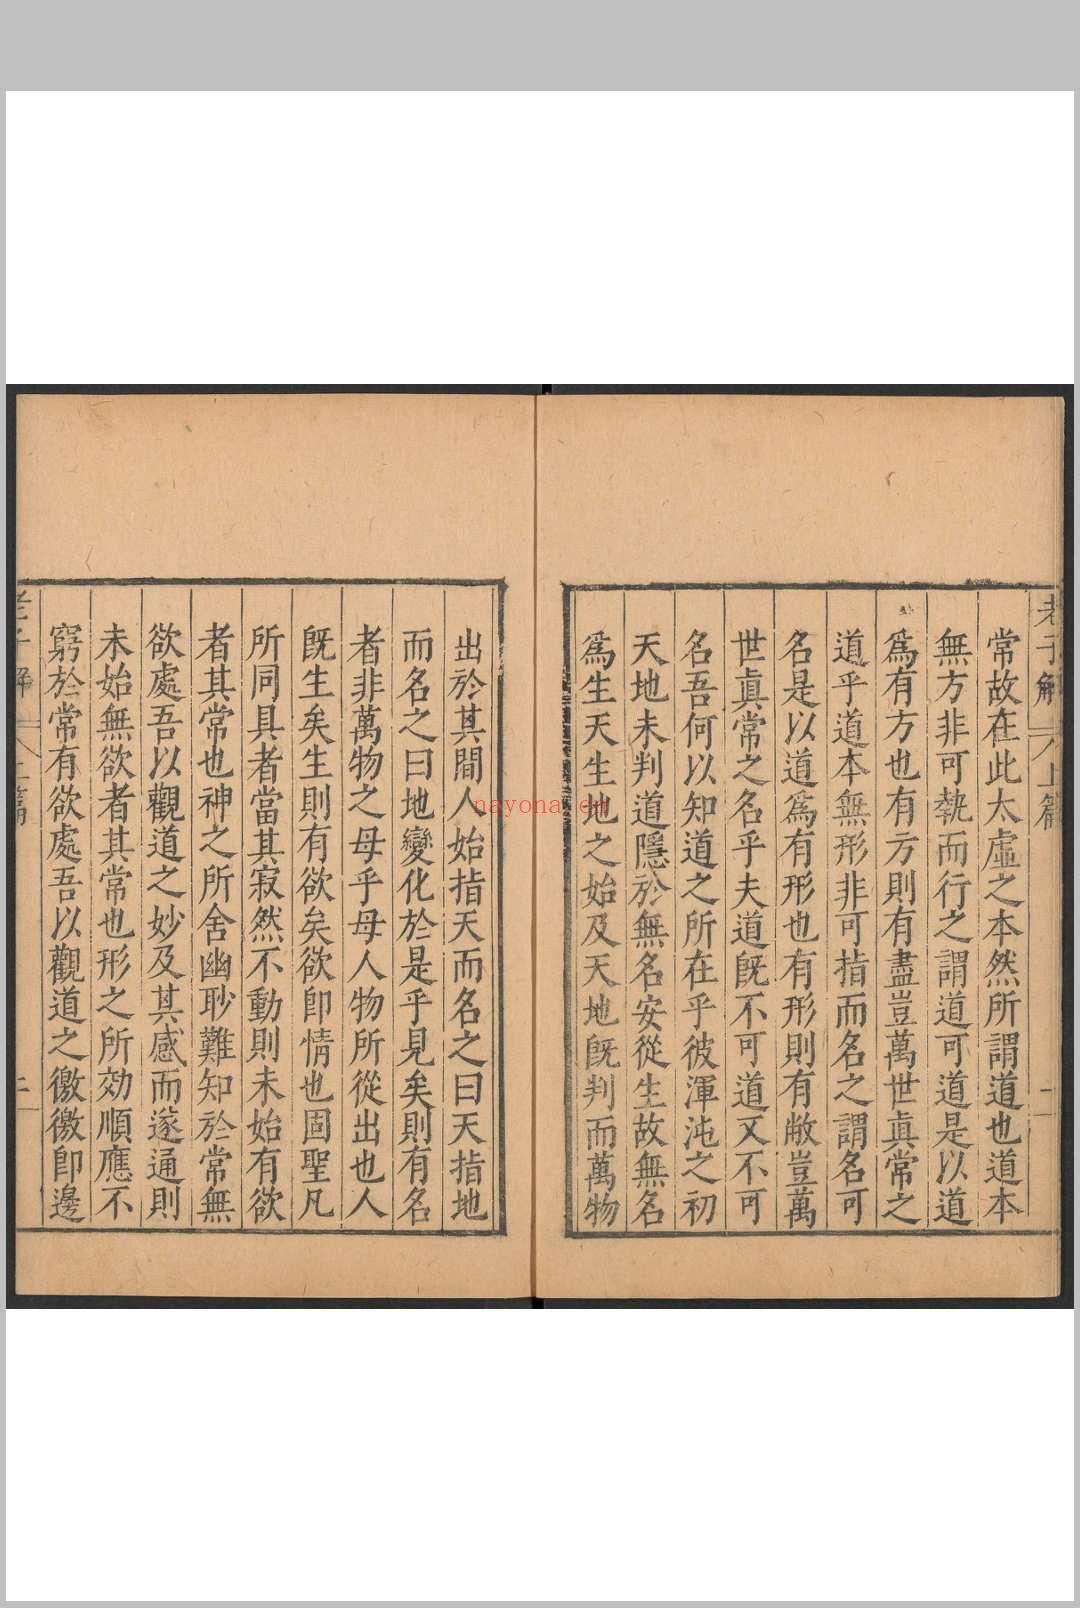 老子解 上篇 二
常故在此太虛之本然所謂道也道本
無方非可執而行之謂道可道是以道
爲有方也有方則有盡豈萬世眞常之
道乎道本無形非可指而名之謂名可
名是以道爲有形也有形則有敝豈萬
世眞常之名乎夫道旣不可道又不可
名吾何以知道之所在乎彼渾沌之初
天地未判道隱於無名安從生故無名
爲生天生地之始及天地旣判而萬物
出於其間人始指天而名之曰天指地
而名之曰地變化於是乎見矣則有名
者非萬物之母乎母人物所從出也人
旣生矣生則有欲矣欲卽情也固聖凡
所同具者當其寂然不動則未始有欲
者其常也神之所舍幽眇難知於常無
欲處吾以觀道之妙及其感而遂通則
未始無欲者其常也形之所効順應不
窮於常有欲處吾以觀道之徼徼卽邊
老子解 上篇
nayona.cn